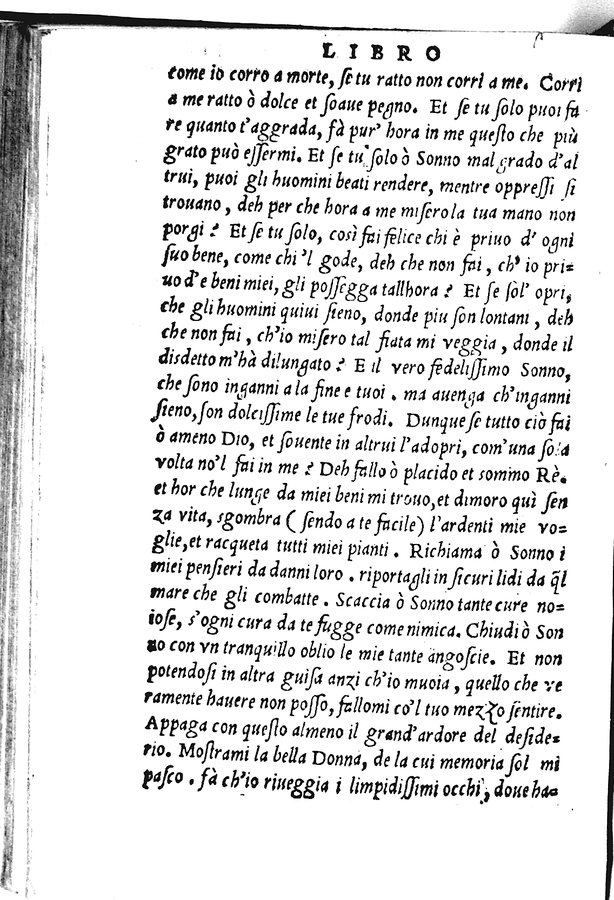 LIBRO
come io corro a morte, ſe tu ratto non corri a me. Corri
a me ratto ò dolce et ſoaue pegno. Et ſe tu ſolo puoi fa
re quanto t'aggrada, fà pur' hora in me queſto che più
grato può eſſermi. Et ſe tu ſolo ò Sonno mal grado d'al
trui, puoi gli huomini beati rendere, mentre oppreſſi ſi
trouano, deh per che hora a me miſero la tua mano non
porgi? Et ſe tu ſolo, così fai felice chi è priuo d' ogni
ſuo bene, come chi 'l gode, deh che non fai, ch' io pri=
uo d'e beni miei, gli poſſegga tallhora? Et ſe ſol' opri,
che gli huomini quiui ſieno, donde piu ſon lontani, deh
che non fai, ch'io miſero tal fiata mi veggia, donde il
disdetto m'hà dilungato? E il vero fedeliſſimo Sonno,
che ſono inganni a la fine e tuoi. ma auenga ch'inganni
ſieno, ſon dolciſſime le tue frodi. Dunque ſe tutto ciò fai
ò ameno Dio, et ſouente in altrui l'adopri, com'una ſola
volta no'l fai in me? Deh fallo ò placido et sommo Rè.
et hor che lunge da miei beni mi trouo, et dimoro quì ſen
za vita, sgombra (ſendo a te facile) l'ardenti mie vo=
glie, et racqueta tutti miei pianti. Richiama ò Sonno i
miei penſieri da danni loro. riportagli in ſicuri lidi da q̃l
mare che gli combatte. Scaccia ò Sonno tante cure no=
ioſe, s'ogni cura da te fugge come nimica. Chiudi ò Son
no con vn tranquillo oblio le mie tante angoſcie. Et non
potendoſi in altra guiſa anzi ch'io muoia, quello che ve
ramente hauere non poſſo, fallomi co'l tuo mezzo ſentire.
Appaga con queſto almeno il grand'ardore del deſide=
rio. Moſtrami la bella Donna, de la cui memoria ſol mi
paſco. fà ch'io riueggia i limpidiſſimi occhi, doue ha=